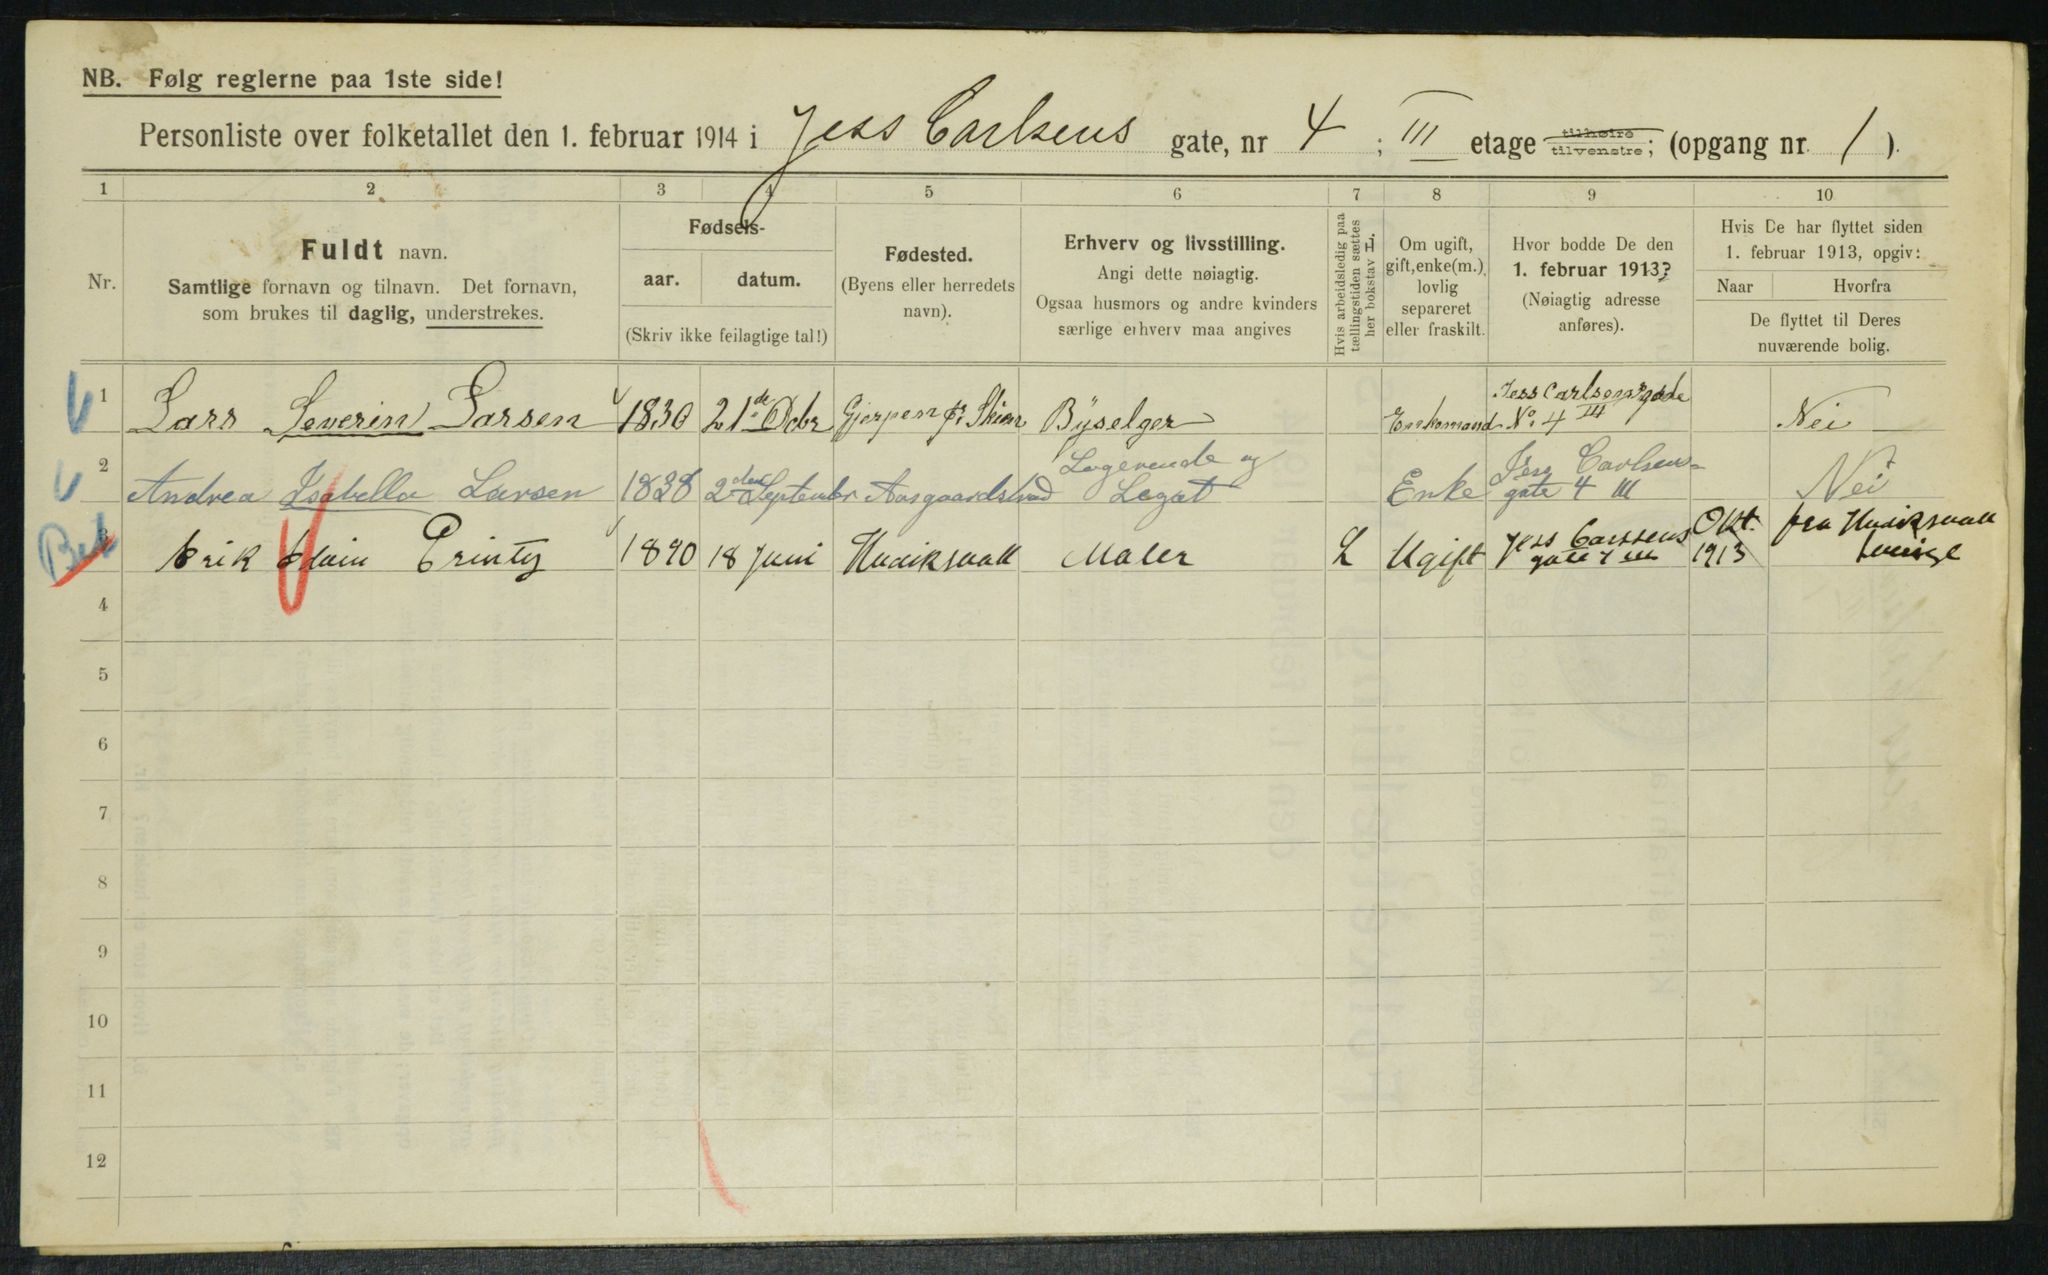 NB. Følg reglerne paa 1ste side!
Personliste over folketallet den 1. februar 1914 i Jess Carlsens gate, nr 4 ; III etage tilhøire tilvenstre; (opgang nr. 1 ).
1 2 3 4 5 6 7 8 9 10
Nr.
Fuldt navn.
Samtlige fornavn og tilnavn. Det fornavn,
som brukes til daglig, understrekes.
Fødsels-
aar. datum.
(Skriv ikke feilagtige tal!)
Fødested.
(Byens eller herredets
navn).
Erhverv og livsstilling.
Angi dette nøiagtig.
Ogsaa husmors og andre kvinders
særlige erhverv maa angives
Hvis arbeidsledig paa
tællingstiden sættes
her bokstav L.
Om ugift,
gift, enke(m.),
lovlig
separeret
eller fraskilt.
Hvor bodde De den
1. februar 1913?
(Nøiagtig adresse
anføres).
Hvis De har flyttet siden
1. februar 1913, opgiv:
Naar Hvorfra
De flyttet til Deres
nuværende bolig.
1 Lars Severin Larsen 1830 21de Octbr Gjerpen pr Skien Byselger Enkemand Jess Carlsens gade No 4 III Nei
2 Andrea Isabella Larsen 1828 2den September Aasgaardstrand Logerende og Legat Enke Jess Carlsens- gate 4 III Nei
3 Erik 1890 18 Juni Hudiksvall Maler L Ugift Jess Carlsens gate 4 III Okt. 1913 fra Hudiksvall Sverige
4
5
6
7
8
9
10
11
12